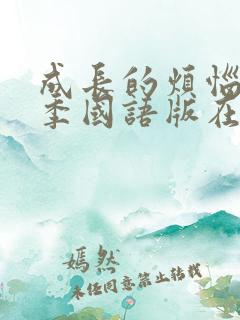 成長的煩惱
季國語版在
嫣然
未经同意禁止转载